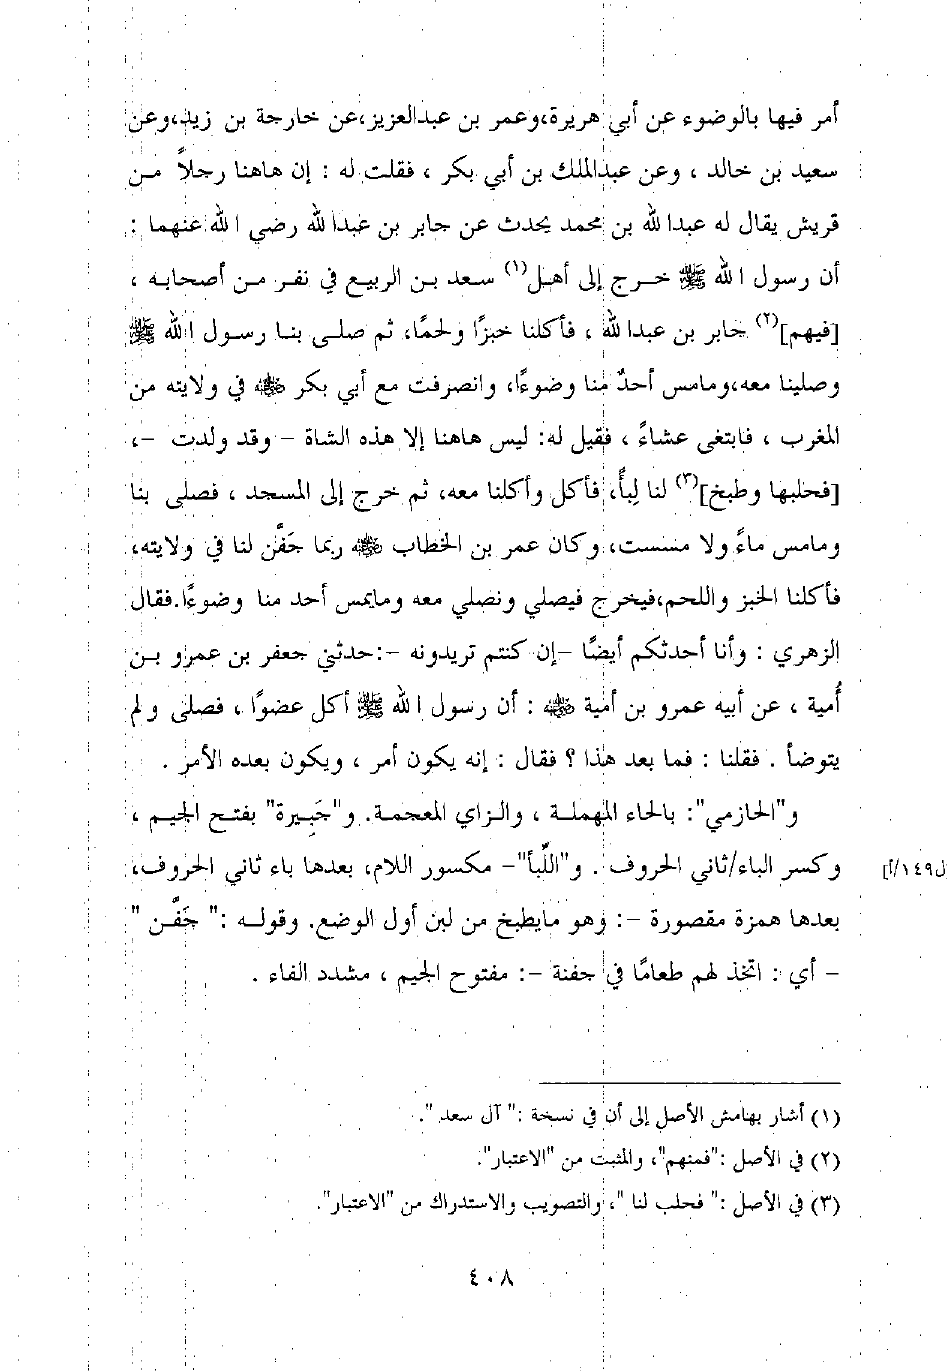 أمر فيها بالوضوء عن أبي هريرة،وعمر بن عبدالعزيز،عن خارجة بن زيد،وعن
سعيد بن خالد ، وعن عبدالملك بن أبي بكر ، فقلت له : إن هاهنا رجلاً من
قريش يقال له عبدا لله بن محمد يحدث عن جابر بن عبدا لله رضي ا لله عنهما :
أن رسول ا لله ﷺ خرج إلى أهل(١) سعد بن الربيع في نفر من أصحابه ،
[فيهم](٢) جابر بن عبدا لله ، فأكلنا خبزًا ولحمًا، ثم صلى بنا رسول ا لله ﷺ
وصلينا معه،ومامس أحدٌ منا وضوءًا، وانصرفت مع أبي بكر ﷺ في ولايته من
المغرب ، فابتغى عشاءً ، فقيل له: ليس هاهنا إلا هذه الشاة – وقد ولدت –،
[فحلبها وطبخ](٣) لنا لِبأً، فأكل وأكلنا معه، ثم خرج إلى المسجد ، فصلى بنا
ومامس ماءً ولا مسست، وكان عمر بن الخطاب ﷺ ربما جَفَّن لنا في ولايته،
فأكلنا الخبز واللحم،فيخرج فيصلي ونصلي معه ومايمس أحد منا وضوءًا.فقال
الزهري : وأنا أحدثكم أيضًا –إن كنتم تريدونه –:حدثني جعفر بن عمرو بن
أُمية ، عن أبيه عمرو بن أمية ﷺ : أن رسول ا لله ﷺ أكل عضوًا ، فصلى ولم
يتوضأ . فقلنا : فما بعد هذا ؟ فقال : إنه يكون أمر ، ويكون بعده الأمر .
و"الحازمي": بالحاء المهملة ، والزاي المعجمة. و"جَبِيرة" بفتح الجيم ،
وكسر الباء/ثاني الحروف . و"اللِّبأ"– مكسور اللام، بعدها باء ثاني الحروف،
ل١٤٩/أ]
بعدها همزة مقصورة –: وهو مايطبخ من لبن أول الوضع. وقوله :" جَفَّن "
– أي : اتخذ لهم طعامًا في جفنة –: مفتوح الجيم ، مشدد الفاء .
(١) أشار بهامش الأصل إلى أن في نسخة :" آل سعد ".
(٢) في الأصل :"فمنهم"، والمثبت من "الاعتبار".
(٣) في الأصل :" فحلب لنا "، والتصويب والاستدراك من "الاعتبار".
٤٠٨